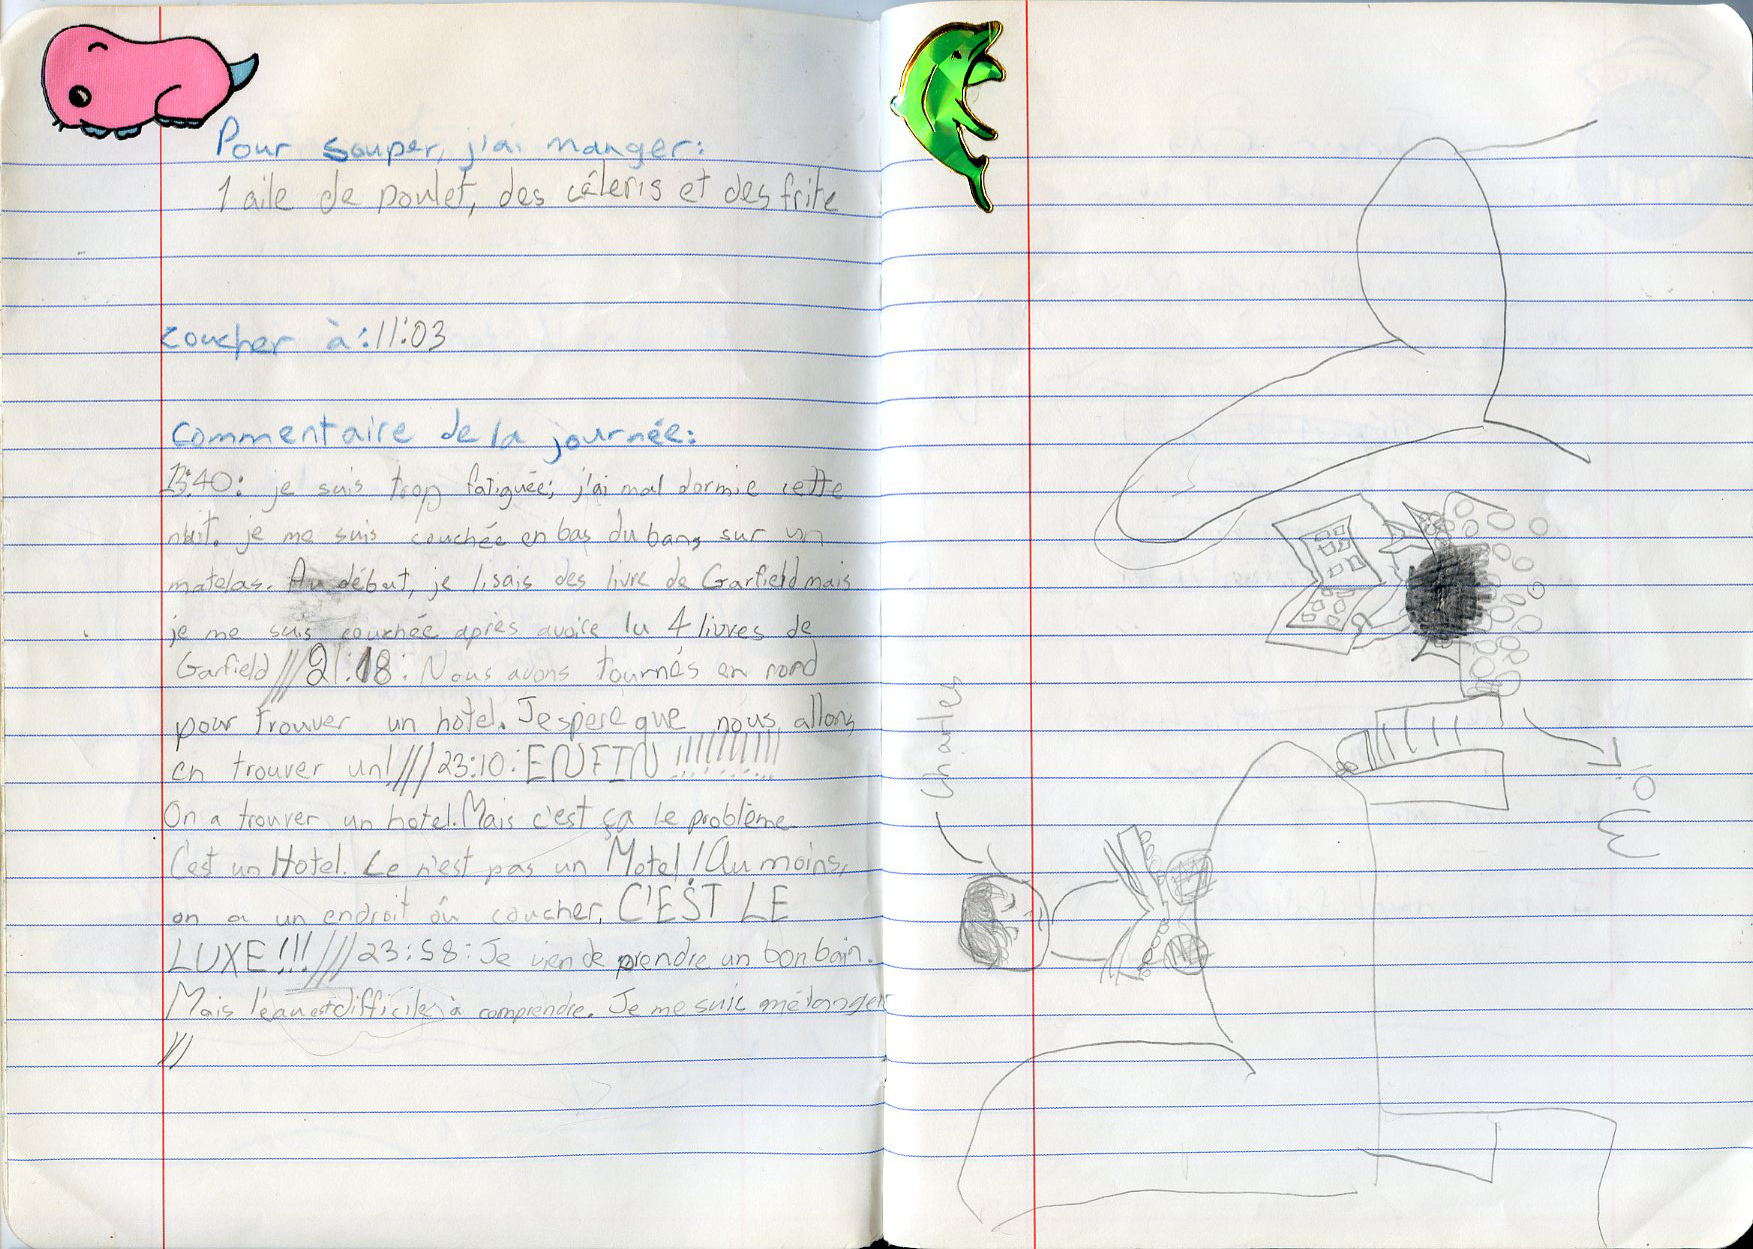 Pour souper, j'ai manger:
1 aile de poulet, des céleris et des frite
coucher à: 11:03
Commentaire de la journée:
13:40: je suis trop fatiguée; j'ai mal dormie cette
nuit. je me suis couchée en bas du banc sur un
matelas. Au début, je lisais des livre de Garfield mais
je me suis couchée après avoire lu 4 livres de
Garfield /// 21:18: Nous avons tournés en rond
pour trouver un hotel. J'espère que nous allons
en trouver un! /// 23:10: ENFIN !!!!!!!!!!
On a trouver un hotel. Mais c'est ça le problème
C'est un Hotel. Ce n'est pas un Motel! Au moins,
on a un endroit où coucher. C'EST LE
LUXE!!! /// 23:58: Je vien de prendre un bon bain.
Mais l'eau est difficile à comprendre. Je me suis mélanger
///
Charles
Moi